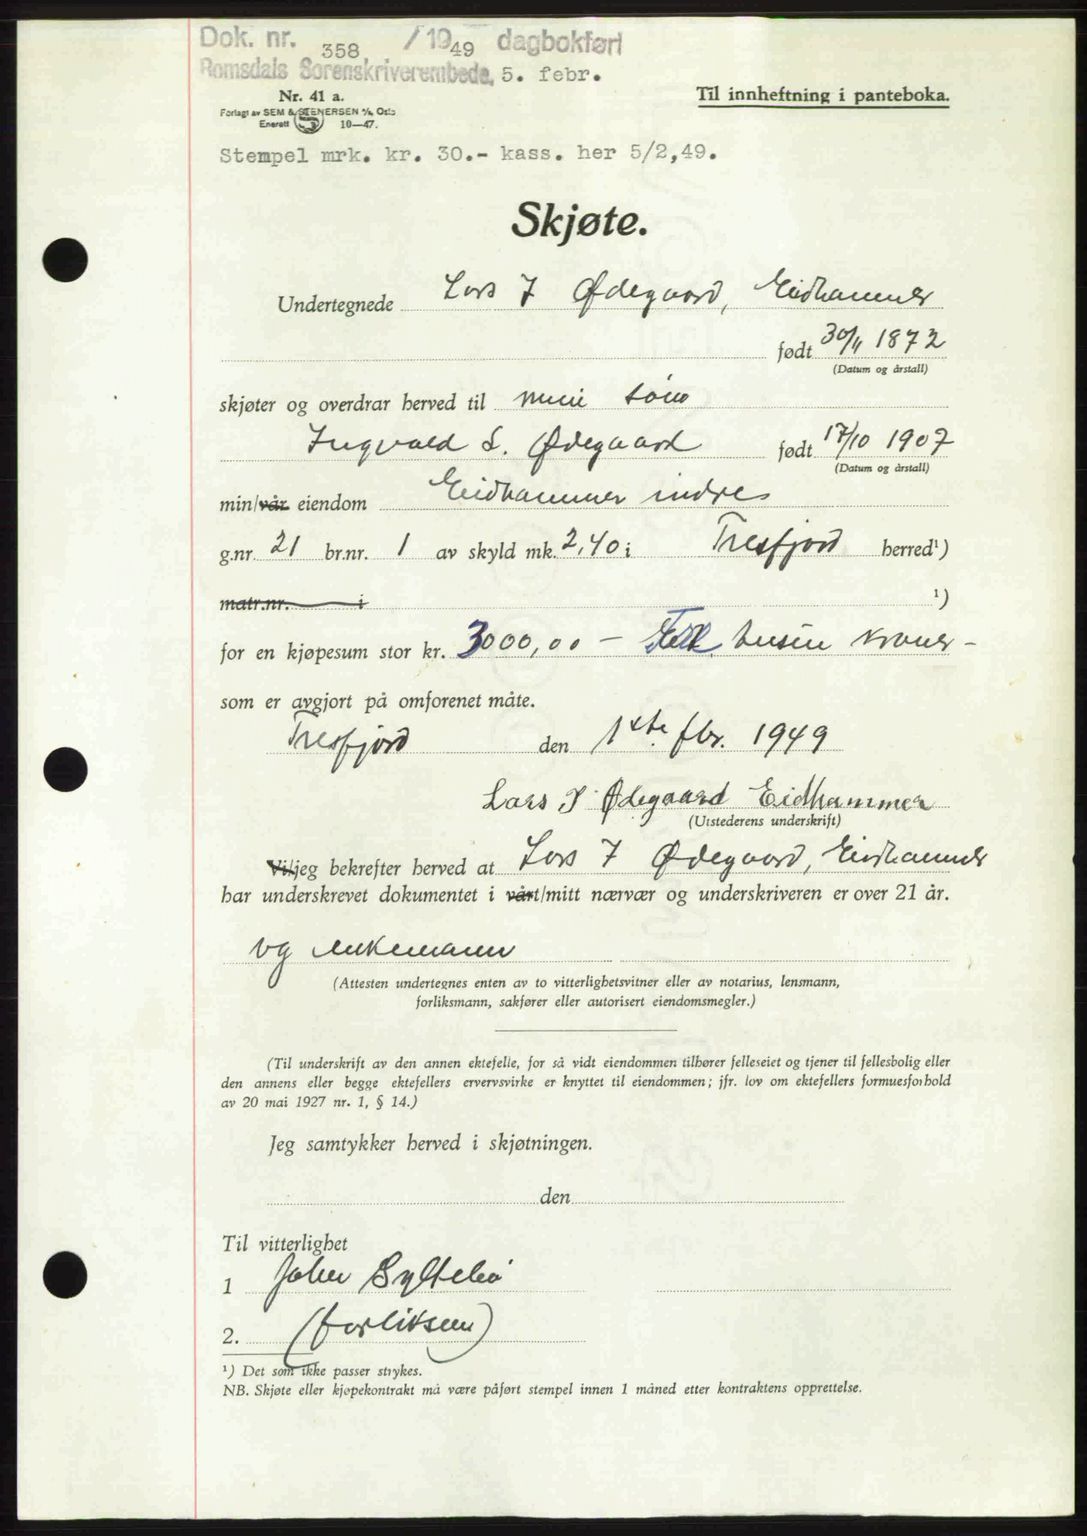 Dok. nr. 358 /1949 dagbokført
Romsdals Sorenskriverembede, 5. febr.
Nr. 41 a.
Til innheftning i panteboka.
Forlagt av SEM & STENERSEN A/S, Oslo
Enerett 10—47.
Stempel mrk. kr. 30.- kass. her 5/2,49.
Skjøte.
Undertegnede Lars J Ødegaard, Eidhammer
født 30/11 1872
(Datum og årstall)
skjøter og overdrar herved til min søn
Ingvald L. Ødegaard født 17/10 1907
(Datum og årstall)
min/vår eiendom Eidhammer indre
g.nr. 21 br.nr. 1 av skyld mk. 2,40 i Tresfjord herred¹)
matr.nr. i ¹)
for en kjøpesum stor kr. 3000,00 — tusen kroner -
som er avgjort på omforenet måte.
Tresfjord den 1ste fbr. 1949
Lars J Ødegaard Eidhammer
(Utstederens underskrift)
Vi/jeg bekrefter herved at Lars J Ødegaard, Eidhammer
har underskrevet dokumentet i vårt/mitt nærvær og underskriveren er over 21 år.
og
(Attesten undertegnes enten av to vitterlighetsvitner eller av notarius, lensmann,
forliksmann, sakfører eller autorisert eiendomsmegler.)
(Til underskrift av den annen ektefelle, for så vidt eiendommen tilhører felleseiet og tjener til fellesbolig eller
den annens eller begge ektefellers ervervsvirke er knyttet til eiendommen; jfr. lov om ektefellers formuesforhold
av 20 mai 1927 nr. 1, § 14.)
Jeg samtykker herved i skjøtningen.
den
Til vitterlighet
1 Johan Syltebø
2. (forliksm)
¹) Det som ikke passer strykes.
NB. Skjøte eller kjøpekontrakt må være påført stempel innen 1 måned etter kontraktens opprettelse.